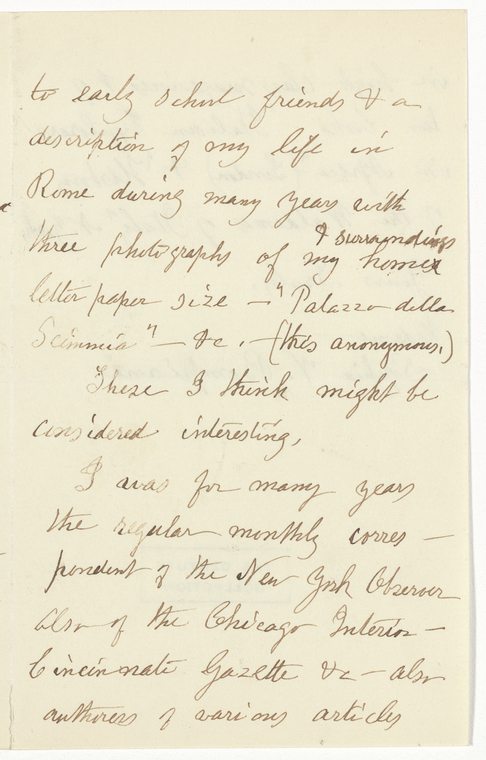 to early school friends & a
description of my life in
Rome during many years with
& surroundings
three photographs of my home
letter paper size — "Palazzo della
Scimmia" — &c. — (this anonymous.)
These I think might be
considered interesting.
I was for many years
the regular monthly corres —
pondent of the New York Observer
also of the Chicago Interior —
Cincinnati Gazette &c — also
authoress of various articles